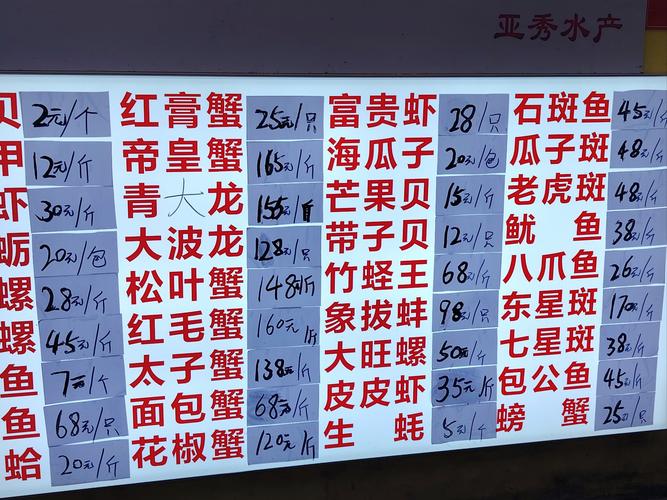 亚秀水产
贝 2元/个 红膏蟹 25元/只 富贵虾 28/只 石斑鱼 45元/斤
甲 12元/斤 帝皇蟹 165元/斤 海瓜子 20元/包 瓜子斑 48元/斤
虾 30元/斤 青大龙 155元/ 芒果贝 15元/斤 老虎斑 48元/斤
蛎 20元/包 大波龙 128元/只 带子贝 12元/只 鱿鱼 38元/斤
螺 28元/斤 松叶蟹 148元/斤 竹蛏王 68/斤 八爪鱼 26元/斤
螺 45元/斤 红毛蟹 160元/斤 象拔蚌 98元/只 东星斑 170元/斤
鱼 7元/斤 太子蟹 138元/斤 大旺螺 50元/斤 七星斑 38元/斤
鱼 68元/斤 面包蟹 68元/斤 皮皮虾 35元/斤 包公鱼 45元/斤
蛤 20元/斤 花椒蟹 120元/斤 生蚝 5元/斤 螃蟹 25元/只